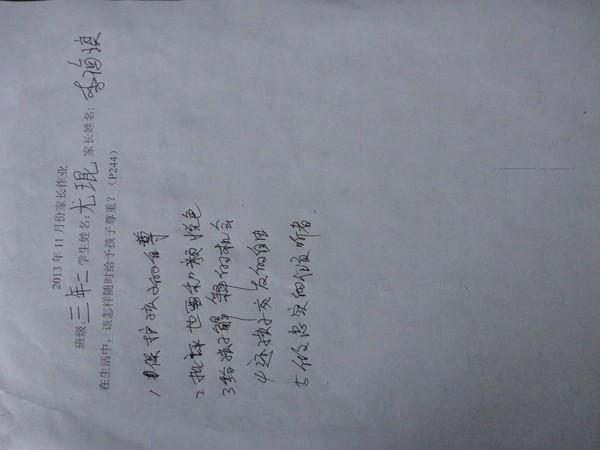 2013 年 11 月份家长作业
班级:三年二 学生姓名:尤琨 家长姓名:李海波
在生活中，该怎样随时给予孩子尊重？（P244）
1 保护孩子的自尊
2 批评也要和颜悦色
3 给孩子解释的机会
4 还孩子交友的自由
5 做忠实的倾听者.